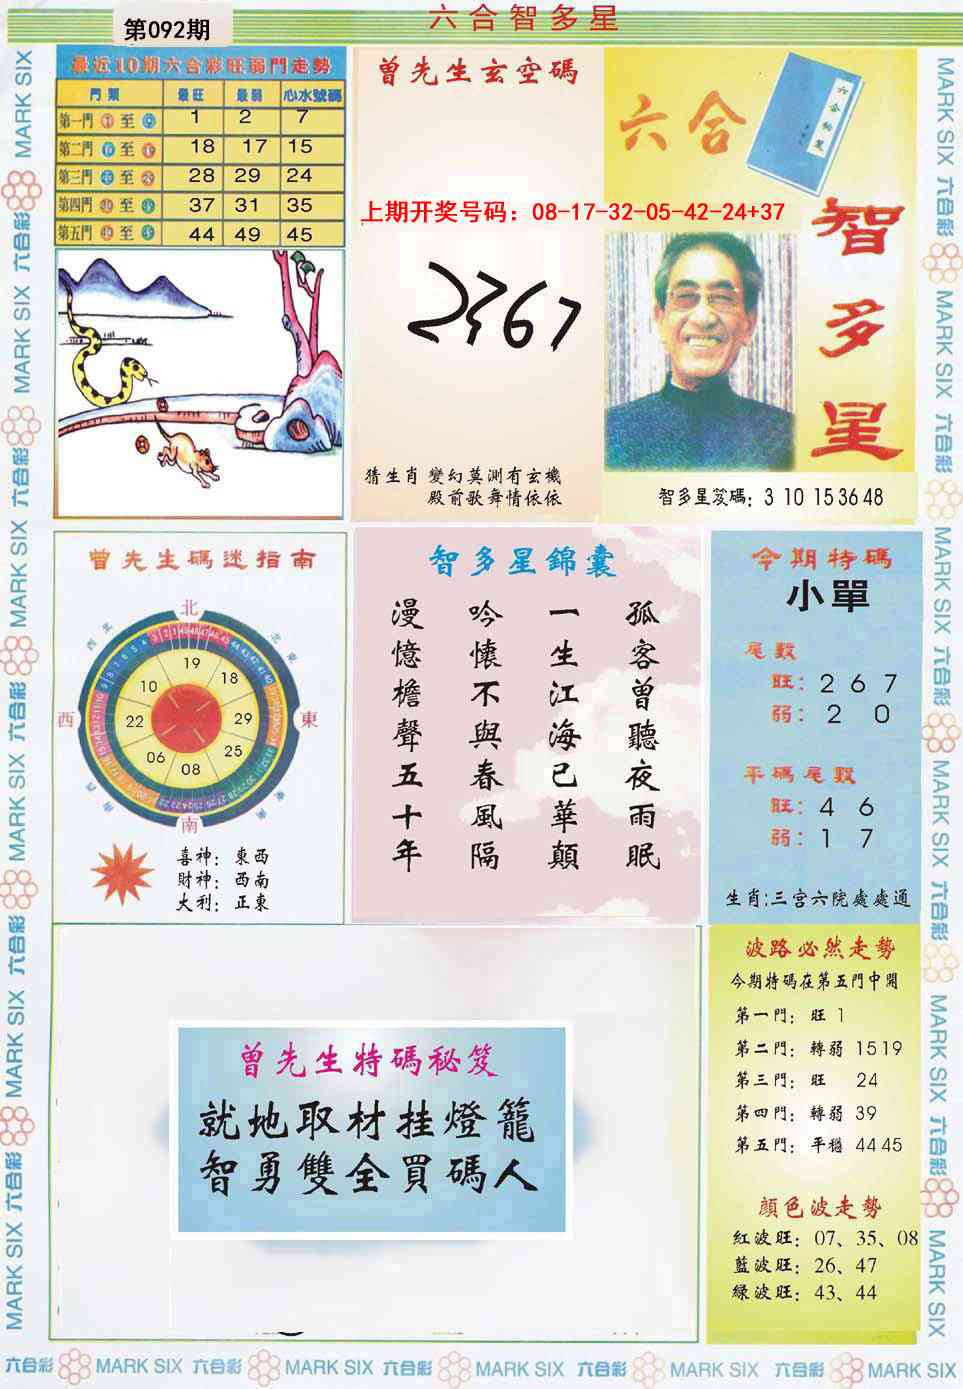 第092期
六合智多星
最近10期六合彩旺弱門走勢
門類 最旺 最弱 心水號碼
第一門 至 1 2 7
第二門 至 18 17 15
第三門 至 28 29 24
第四門 至 37 31 35
第五門 至 44 49 45
曾先生玄空碼
上期开奖号码：08-17-32-05-42-24+37
2367
猜生肖 變幻莫測有玄機
殿前歌舞情依依
六合
智多星
智多星笈碼：3 10 15 36 48
曾先生碼迷指南
北
西北
東北
西
東
西南
東南
南
19
18
29
25
08
06
22
10
喜神：東西
財神：西南
大利：正東
智多星錦囊
孤客曾聽夜雨眠
一生江海已華顛
吟懷不與春風隔
漫憶檐聲五十年
今期特碼
小單
尾數
旺：2 6 7
弱：2 0
平碼尾數
旺：4 6
弱：1 7
生肖：三宮六院處處通
曾先生特碼秘笈
就地取材挂燈籠
智勇雙全買碼人
波路必然走勢
今期特碼在第五門中開
第一門：旺 1
第二門：轉弱 15 19
第三門：旺 24
第四門：轉弱 39
第五門：平穩 44 45
顏色波走勢
紅波旺：07、35、08
藍波旺：26、47
綠波旺：43、44
MARK SIX 六合彩